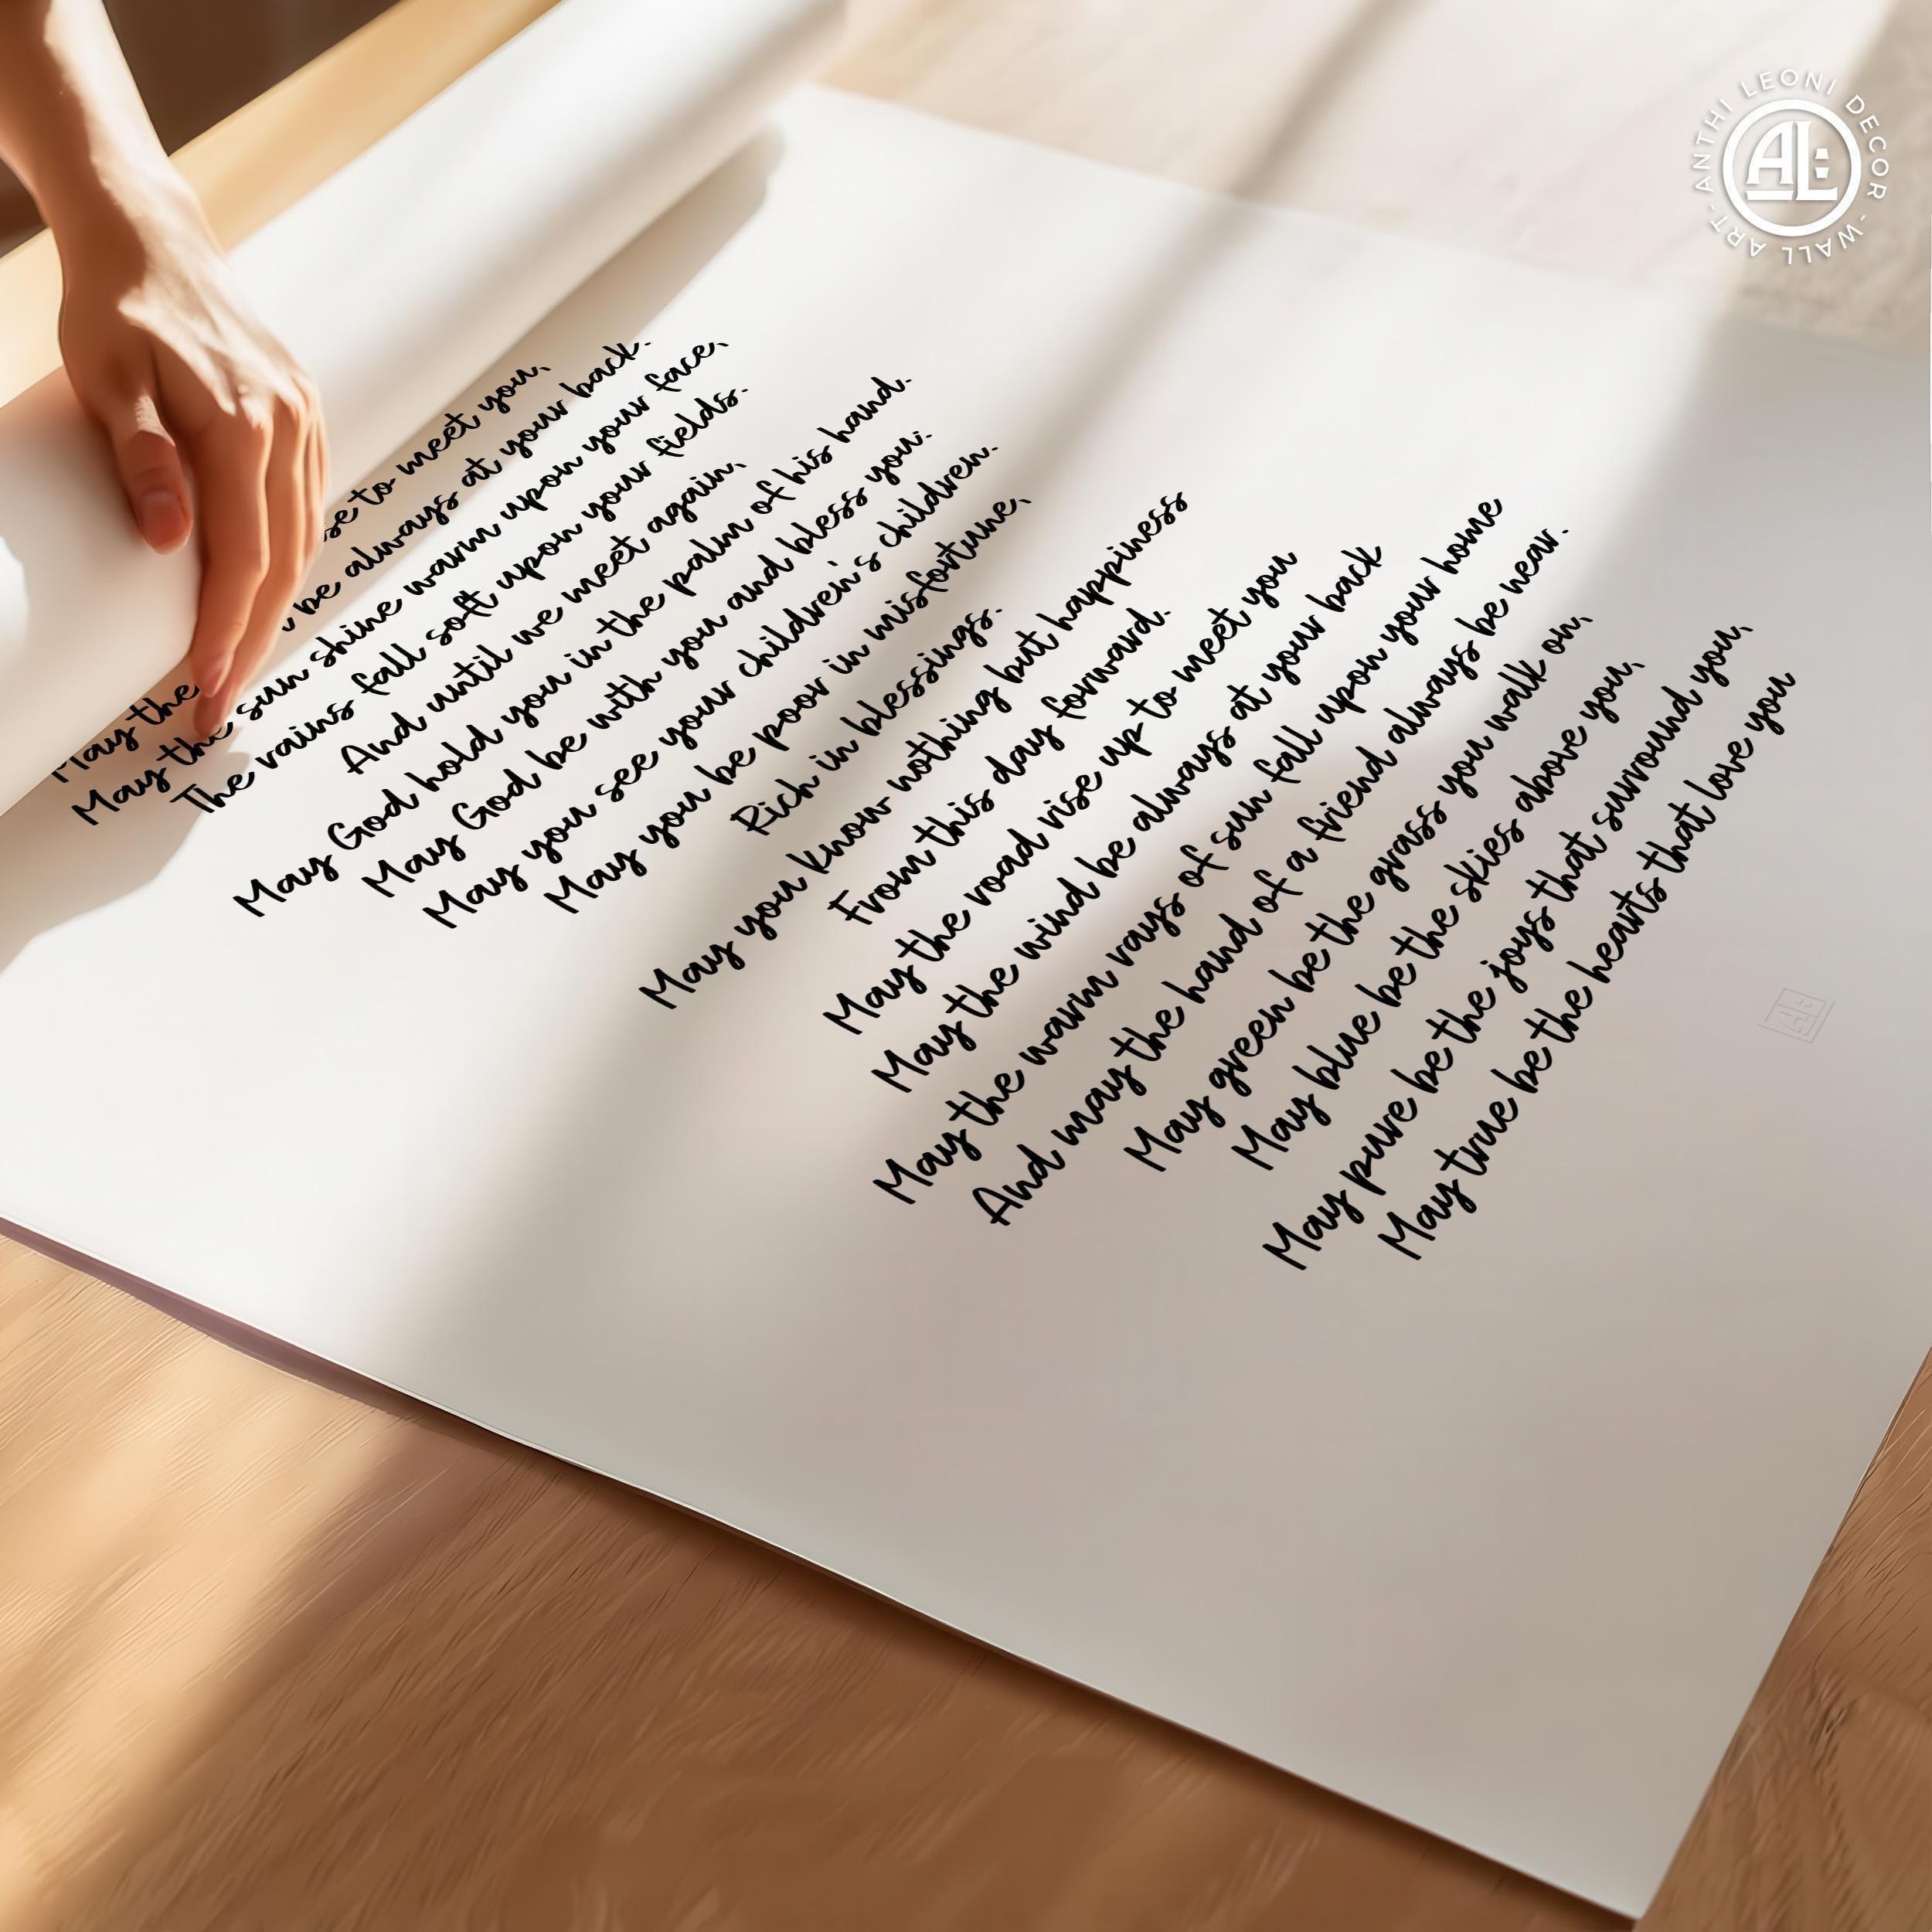 se to meet you,
May the be always at your back.
May the sun shine warm upon your face,
The rains fall soft upon your fields.
And until we meet again,
May God hold you in the palm of his hand.
May God be with you and bless you:
May you see your children's children.
May you be poor in misfortune,
Rich in blessings.
May you know nothing but happiness
From this day forward.
May the road rise up to meet you
May the wind be always at your back
May the warm rays of sun fall upon your home
And may the hand of a friend always be near.
May green be the grass you walk on,
May blue be the skies above you,
May pure be the joys that surround you,
May true be the hearts that love you
ANTHI LEONI DECOR - WALL ART -
AL